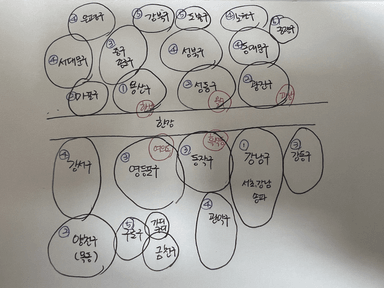 ④ 은평구
⑤ 강북구
⑤ 도봉구
④ 노원구
⑤ 중랑구
④ 서대문구
③ 종구
중구
④ 성북구
④ 동대문구
② 마포구
① 용산구
② 성동구
② 광진구
한강
④ 강서구
③ 영등포구
여의도
③ 동작구
흑석동
① 강남구
서초, 강남
송파
③ 강동구
② 양천구
(목동)
⑤ 구로구
금천구
④ 관악구